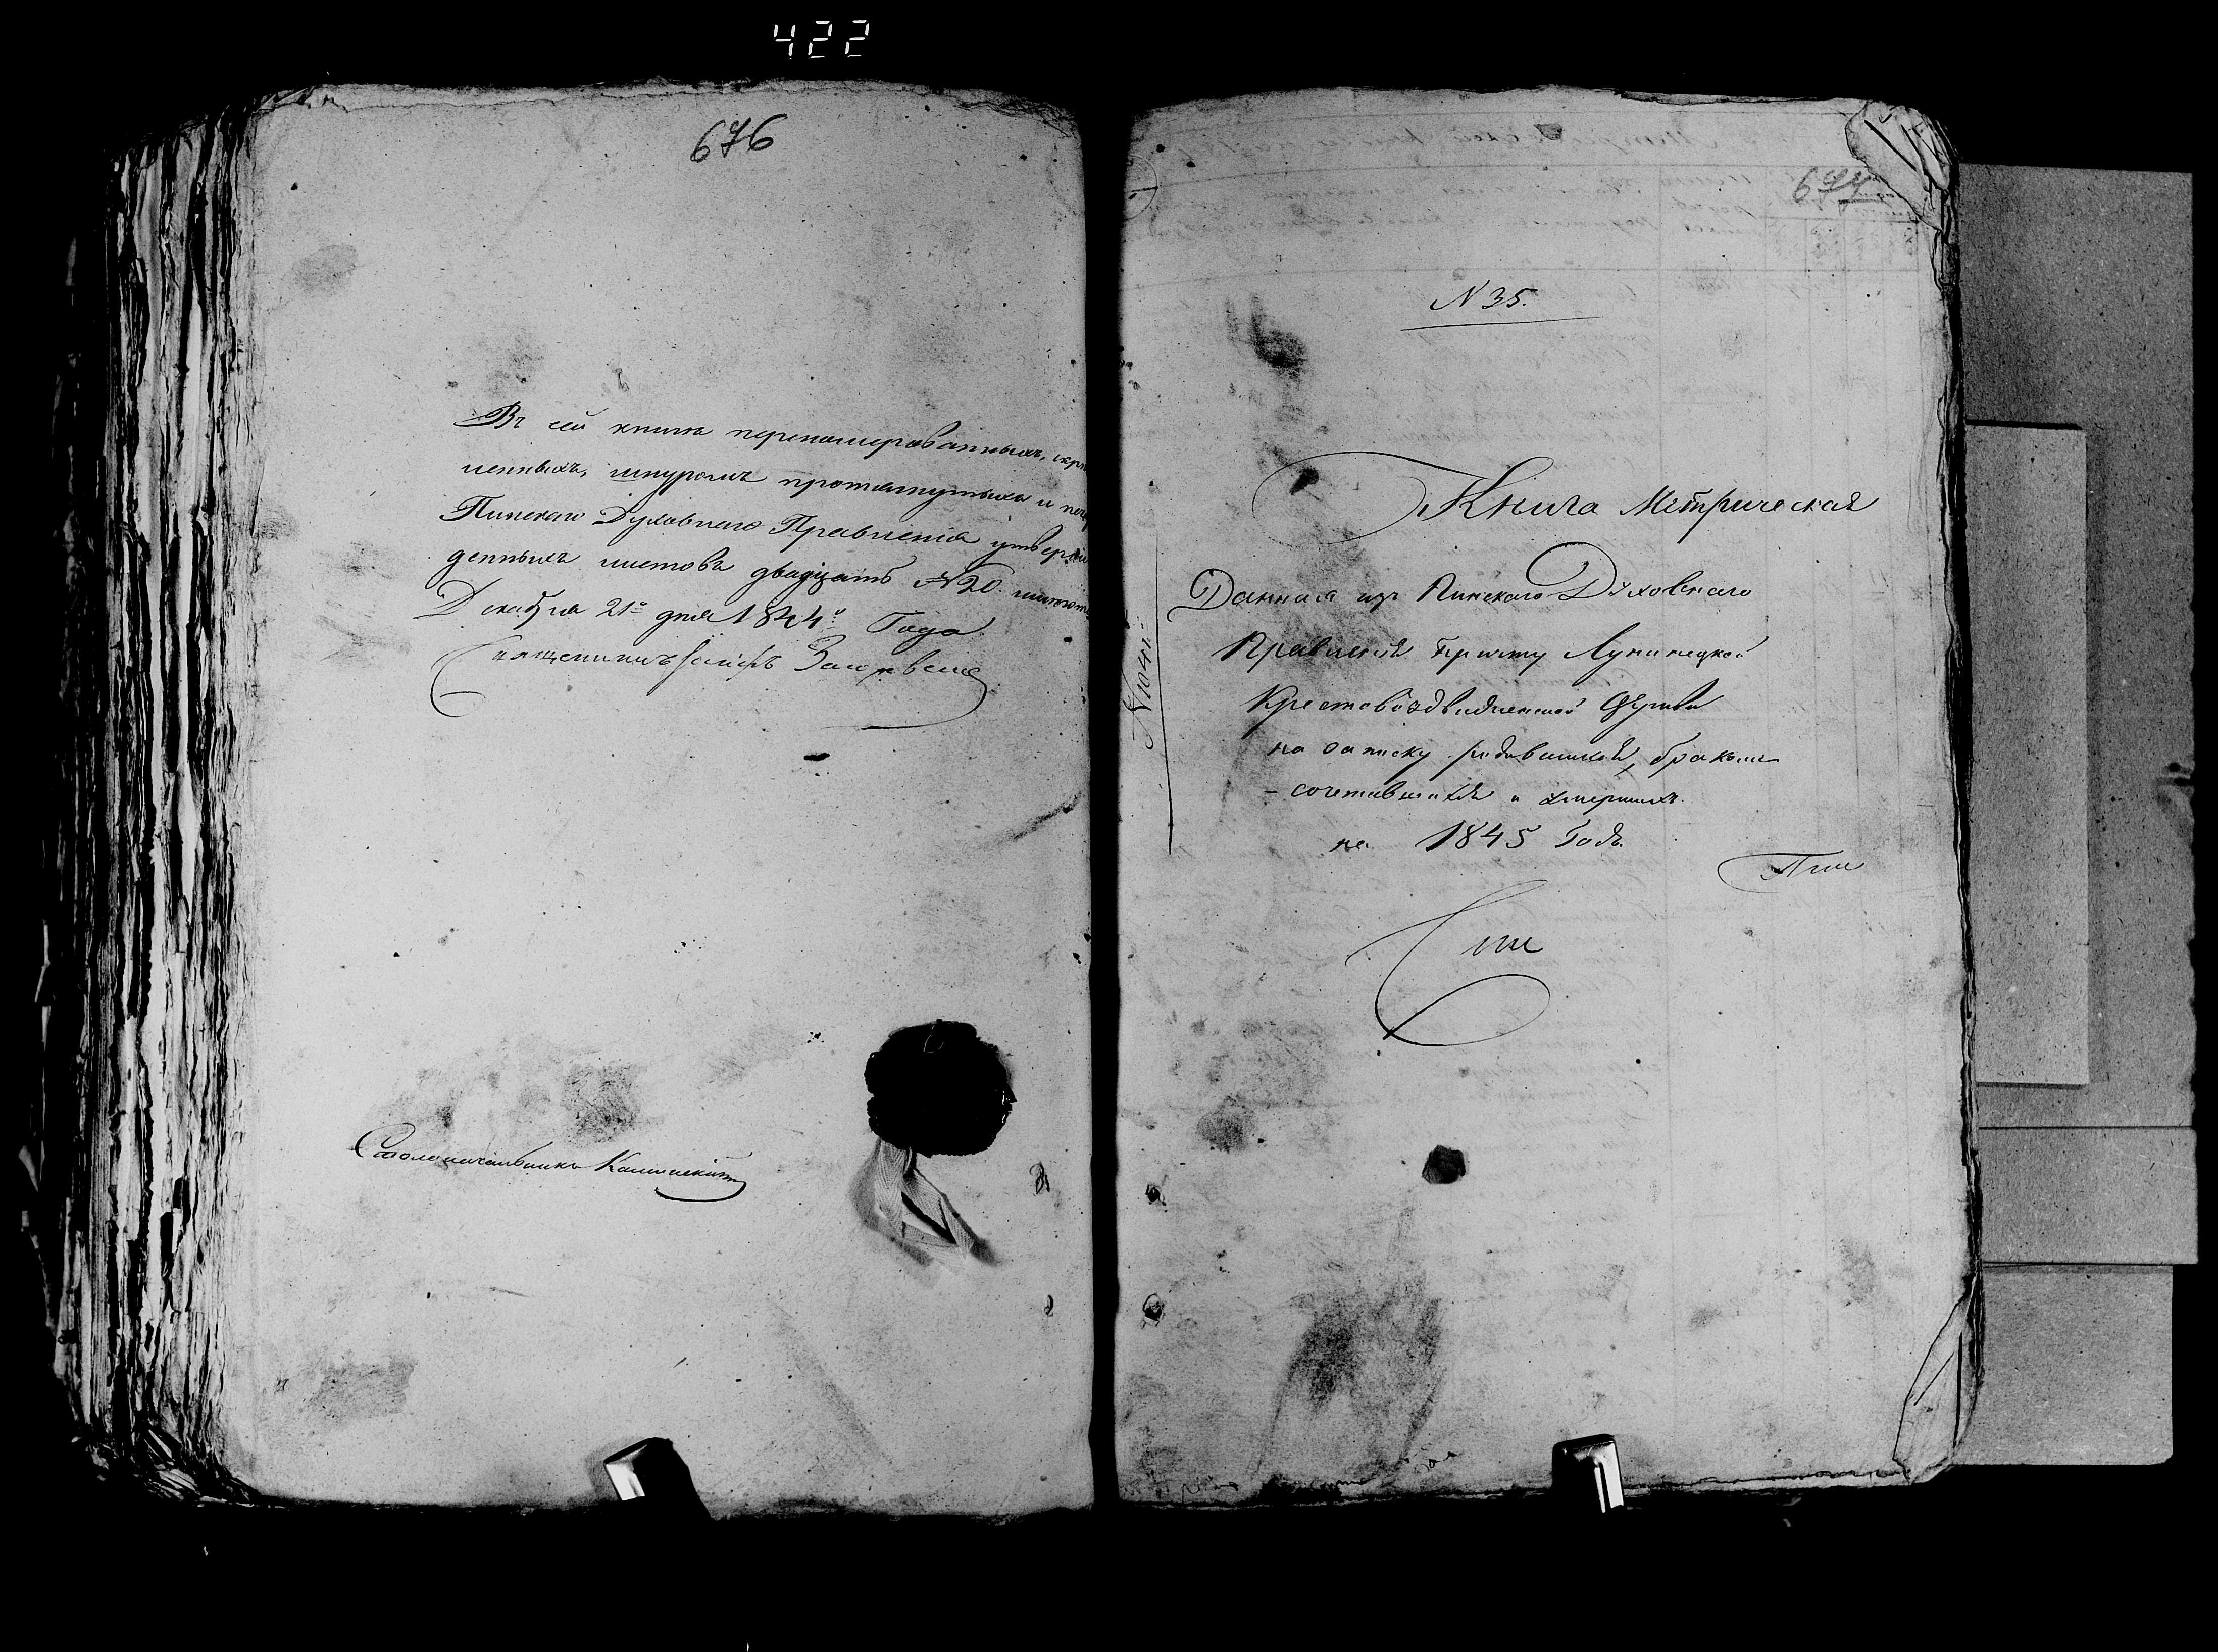 422
676
Въ сей книгѣ перенумерованныхъ, скрѣ
пленныхъ, шнуромъ протянутыхъ и печ
Пинскаго Духовнаго Правленія утверж
денныхъ листовъ двадцать №20.
Декабря 21го дня 1844го Года
Священникъ Іосифъ
Столоначальникъ
677
N 35.
Книга Метрическая
Данная изъ Пинскаго Духовнаго
Правленія Причту Лунинецкой
Крестовоздвиженской Церкви
на записку родившихся, бракомъ
- сочетавшихся и умершихъ.
на 1845 Годъ.
Пин
N1041